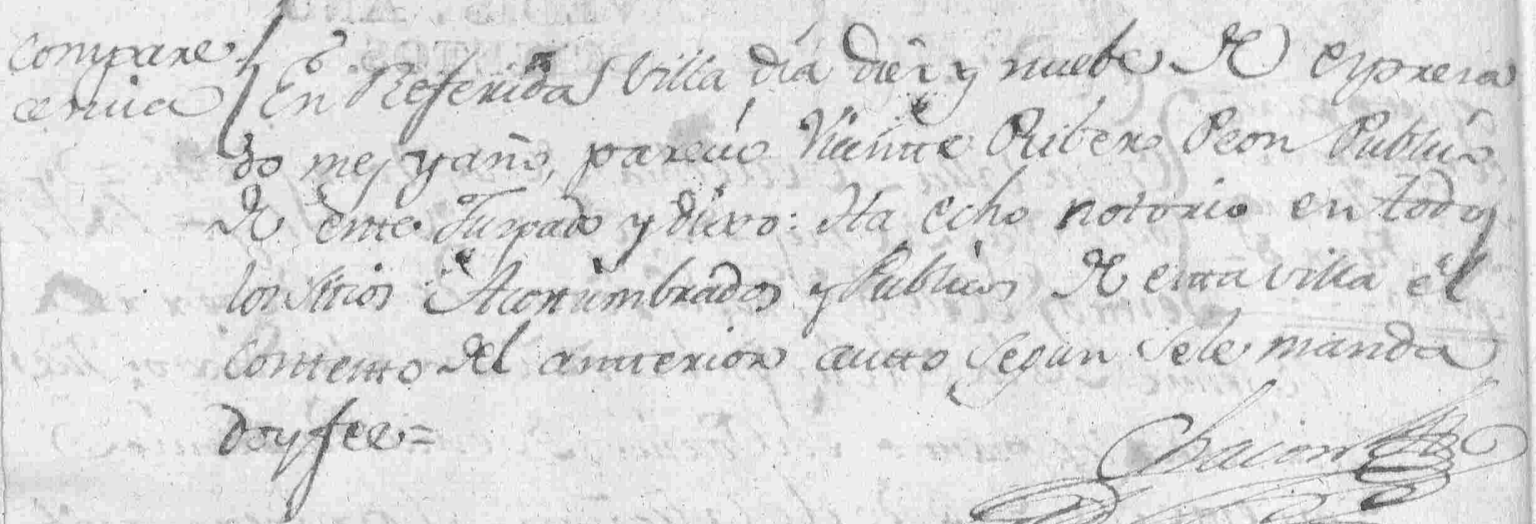 Compare
cencia
En Referida Villa dia diez y nuebe de expresa
do mes y año, parecio Vicente Ribero Peon Publico
de este Juzgado y dixo: Ha echo notorio en todos
los sitios Acostumbrados y Publicos de esta villa el
contexto del antterior autto segun se le manda
doy fee =
Chacon